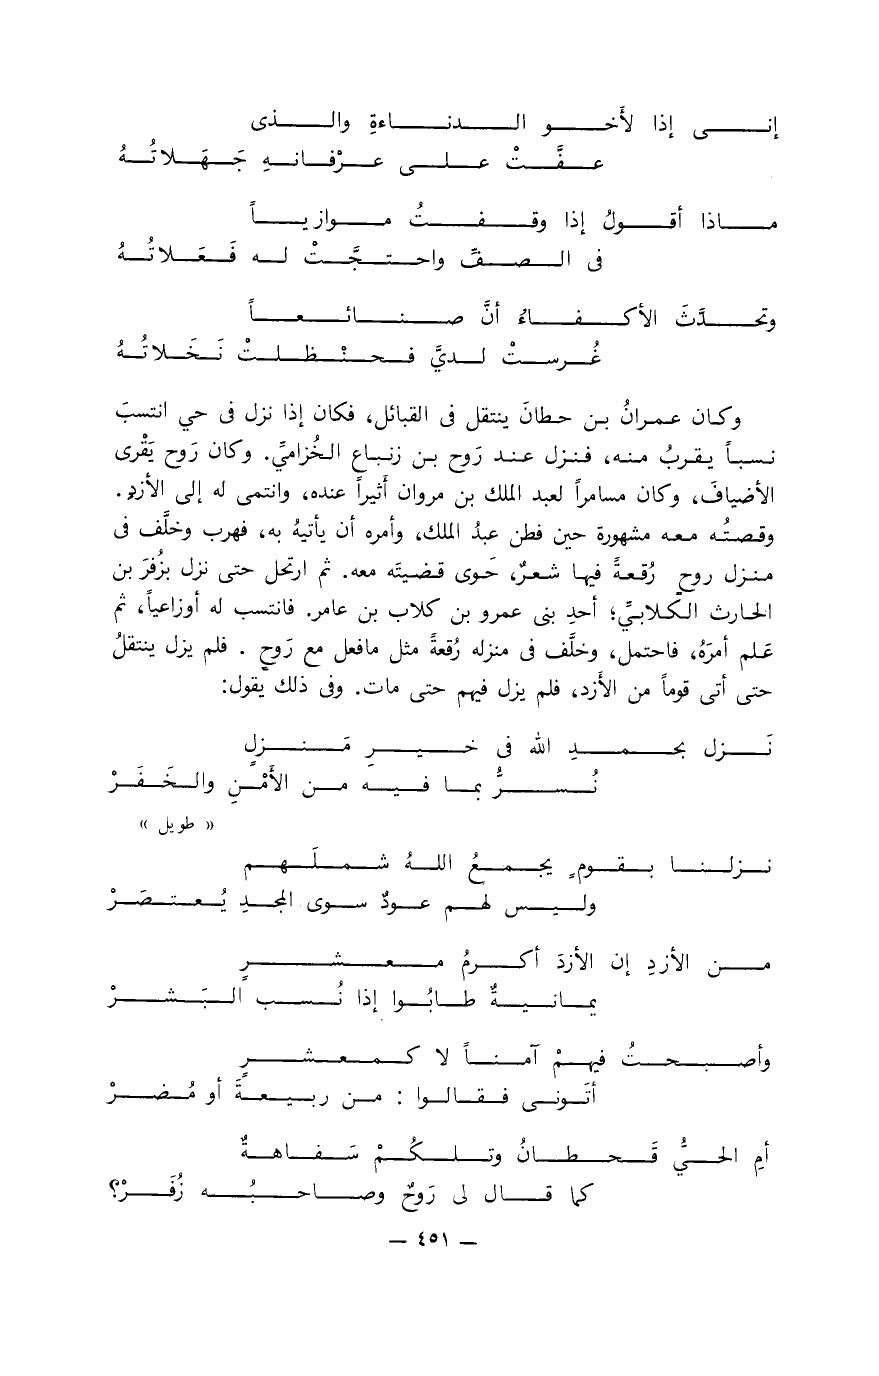 إنى إذا لأخو الدناءةِ والذى
عفَّتْ على عرْفانهِ جَهَلاتُهُ
ماذا أقولُ إذا وقفتُ موازياً
فى الصفِّ واحتجَّتْ له فَعَلاتُهُ
وتحدَّثَ الأكفاءُ أنَّ صنائعاً
غُرستْ لديَّ فحنْظلتْ نَخَلاتُهُ
وكان عمرانُ بن حطانَ ينتقل فى القبائل، فكان إذا نزل فى حي انتسبَ
نسباً يقربُ منه، فنزل عند رَوح بن زنباع الخُزاميِّ. وكان رَوح يَقْرى
الأضيافَ، وكان مسامراً لعبد الملك بن مروان أَثيراً عنده، وانتمى له إلى الأزدِ.
وقصتُه معه مشهورة حين فطن عبدُ الملك، وأمره أن يأتيهُ به، فهرب وخلَّف فى
منزل روحٍ رُقعةً فيها شعرٌ، حَوى قضيتَه معه. ثم ارتحل حتى نزل بزُفرَ بن
الحارث الكلابيِّ؛ أحدِ بنى عمرو بن كلاب بن عامر. فانتسب له أوزاعياً، ثم
عَلم أمرَهُ، فاحتمل، وخلَّف فى منزله رُقعةً مثل مافعل مع رَوحٍ . فلم يزل ينتقلُ
حتى أتى قوماً من الأزد، فلم يزل فيهم حتى مات. وفى ذلك يقول:
نَزل بحمدِ الله فى خيرِ مَنزلٍ
نُسرُّ بما فيه من الأَمْنِ والخَفَرْ
« طويل »
نزلنا بقومٍ يجمعُ اللهُ شملَهم
وليس لهم عودٌ سوى المجدِ يُعتصَرْ
من الأزدِ إن الأزدَ أكرمُ معشرٍ
يمانيةٌ طابُوا إذا نُسب البَشرْ
وأصبحتُ فيهمْ آمناً لا كمعشرٍ
أتَونى فقالوا : من ربيعةَ أو مُضرْ
أمِ الحيُّ قَحطانُ وتلكُمْ سَفاهةٌ
كما قال لى رَوحٌ وصاحبُه زُفَرْ؟
— ٤٥١ —